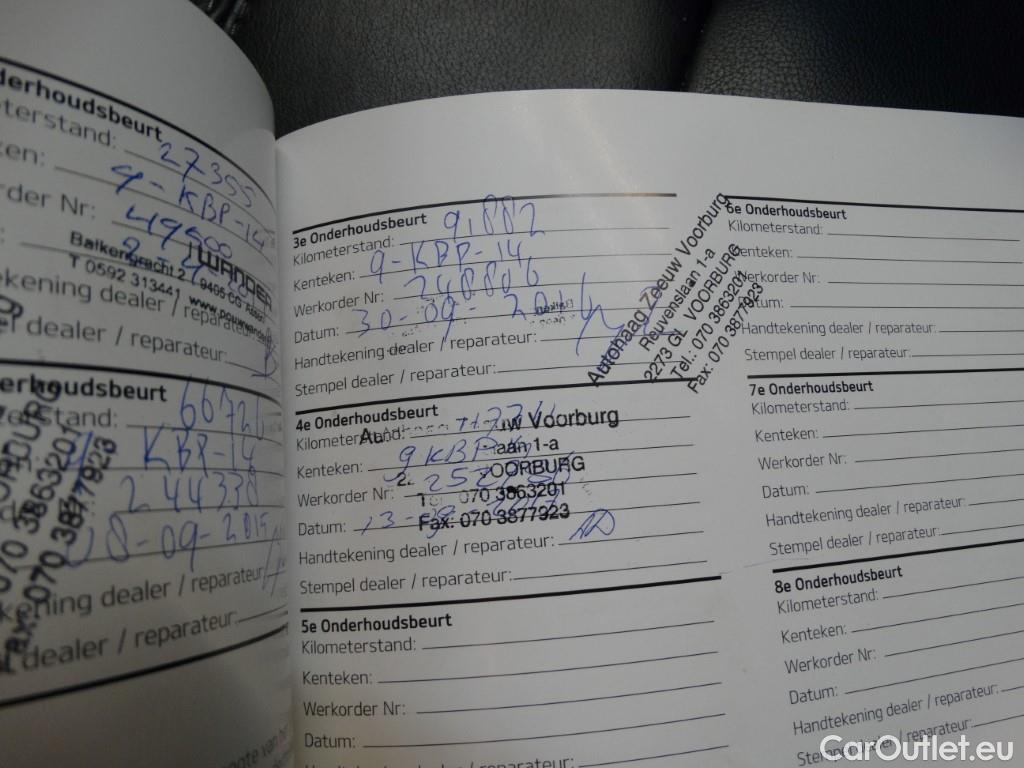 derhoudsbeurt
terstand: 27355
ken: 9-KBP-14
order Nr: 49500
WANDER
Balkengracht 2 9405 CG Assen
T 0592 31344
ekening dealer / reparateur:
el dealer / reparateur:
erhoudsbeurt
stand: 66726
KBP-14
244338
08-09-2015
kening dealer / reparateur:
l dealer / reparateur:
OORBURG
070 3863201
Fax: 070 3877923
3e Onderhoudsbeurt
Kilometerstand: 9.882
Kenteken: 9-KBP-14
Werkorder Nr: 248806
Datum: 30-09-2016
Handtekening dealer / reparateur:
Stempel dealer / reparateur:
Autohaag Zeeuw Voorburg
Reuvenslaan 1-a
2273 GL VOORBURG
Tel.: 070 3863201
Fax: 070 3877923
4e Onderhoudsbeurt
Kilometerstand:
Kenteken: 9KBP
Werkorder Nr:
Datum: 13-09-2017
Handtekening dealer / reparateur:
Stempel dealer / reparateur:
uw Voorburg
laan 1-a
VOORBURG
070 3863201
Fax: 070 3877923
5e Onderhoudsbeurt
Kilometerstand:
Kenteken:
Werkorder Nr:
Datum:
Handtekening dealer / reparateur:
6e Onderhoudsbeurt
Kilometerstand:
Kenteken:
Werkorder Nr:
Datum:
Handtekening dealer / reparateur:
Stempel dealer / reparateur:
7e Onderhoudsbeurt
Kilometerstand:
Kenteken:
Werkorder Nr:
Datum:
Handtekening dealer / reparateur:
Stempel dealer / reparateur:
8e Onderhoudsbeurt
Kilometerstand:
Kenteken:
Werkorder Nr:
Datum:
Handtekening dealer / reparateur:
Stempel dealer / reparateur:
CarOutlet.eu